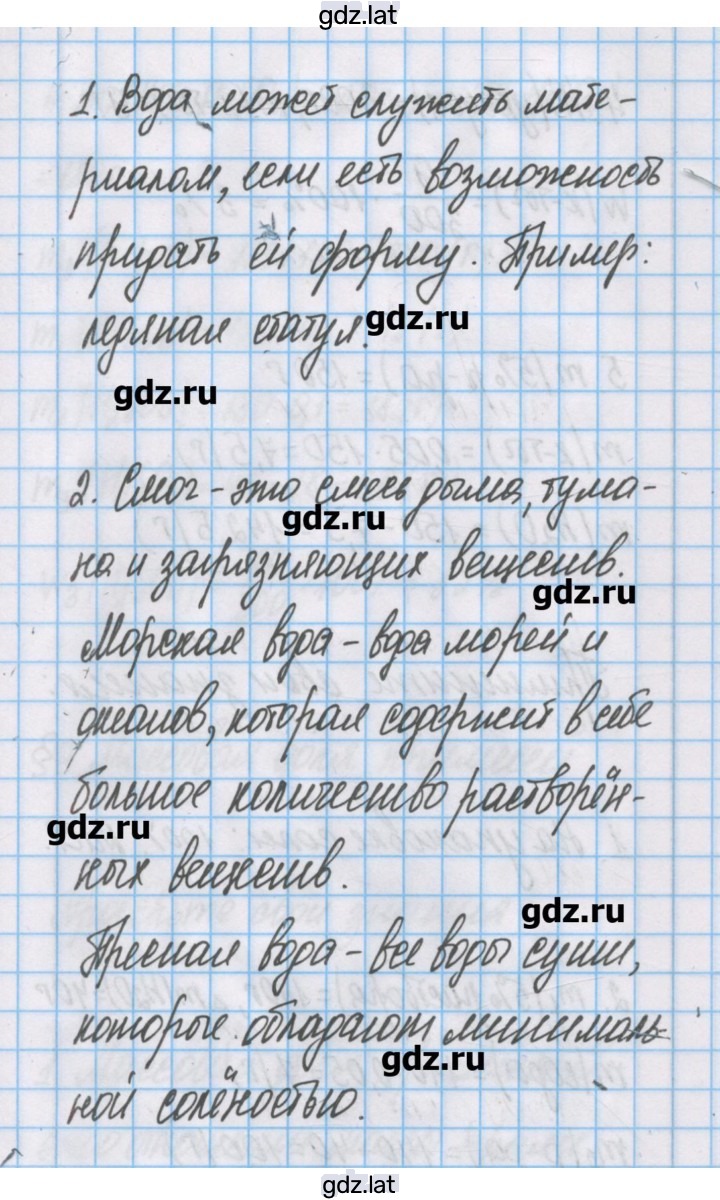 gdz.lat
1. Вода может служить мате-
риалом, если есть возможность
придать ей форму. Пример:
ледяная статуя.
gdz.ru
gdz.ru
2. Смог - это смесь дыма, тума-
gdz.ru
на и загрязняющих веществ.
gdz.ru
Морская вода - вода морей и
океанов, которая содержит в себе
большое количество растворён-
gdz.ru
ных веществ.
gdz.ru
Пресная вода - все воды суши,
которые обладают минималь-
gdz.ru
ной солёностью.
gdz.lat